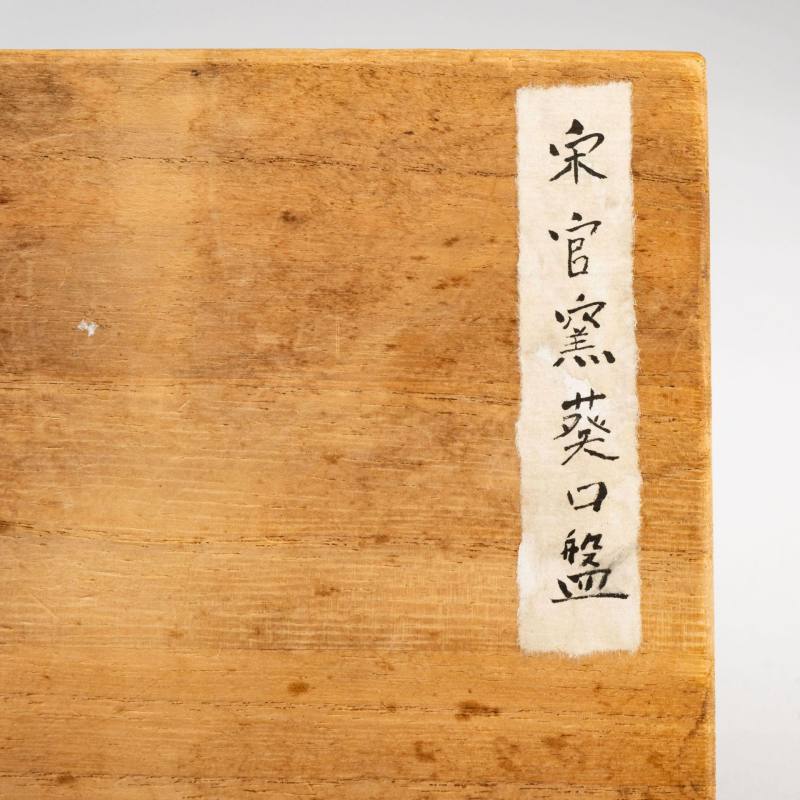 宋官窯葵口盤